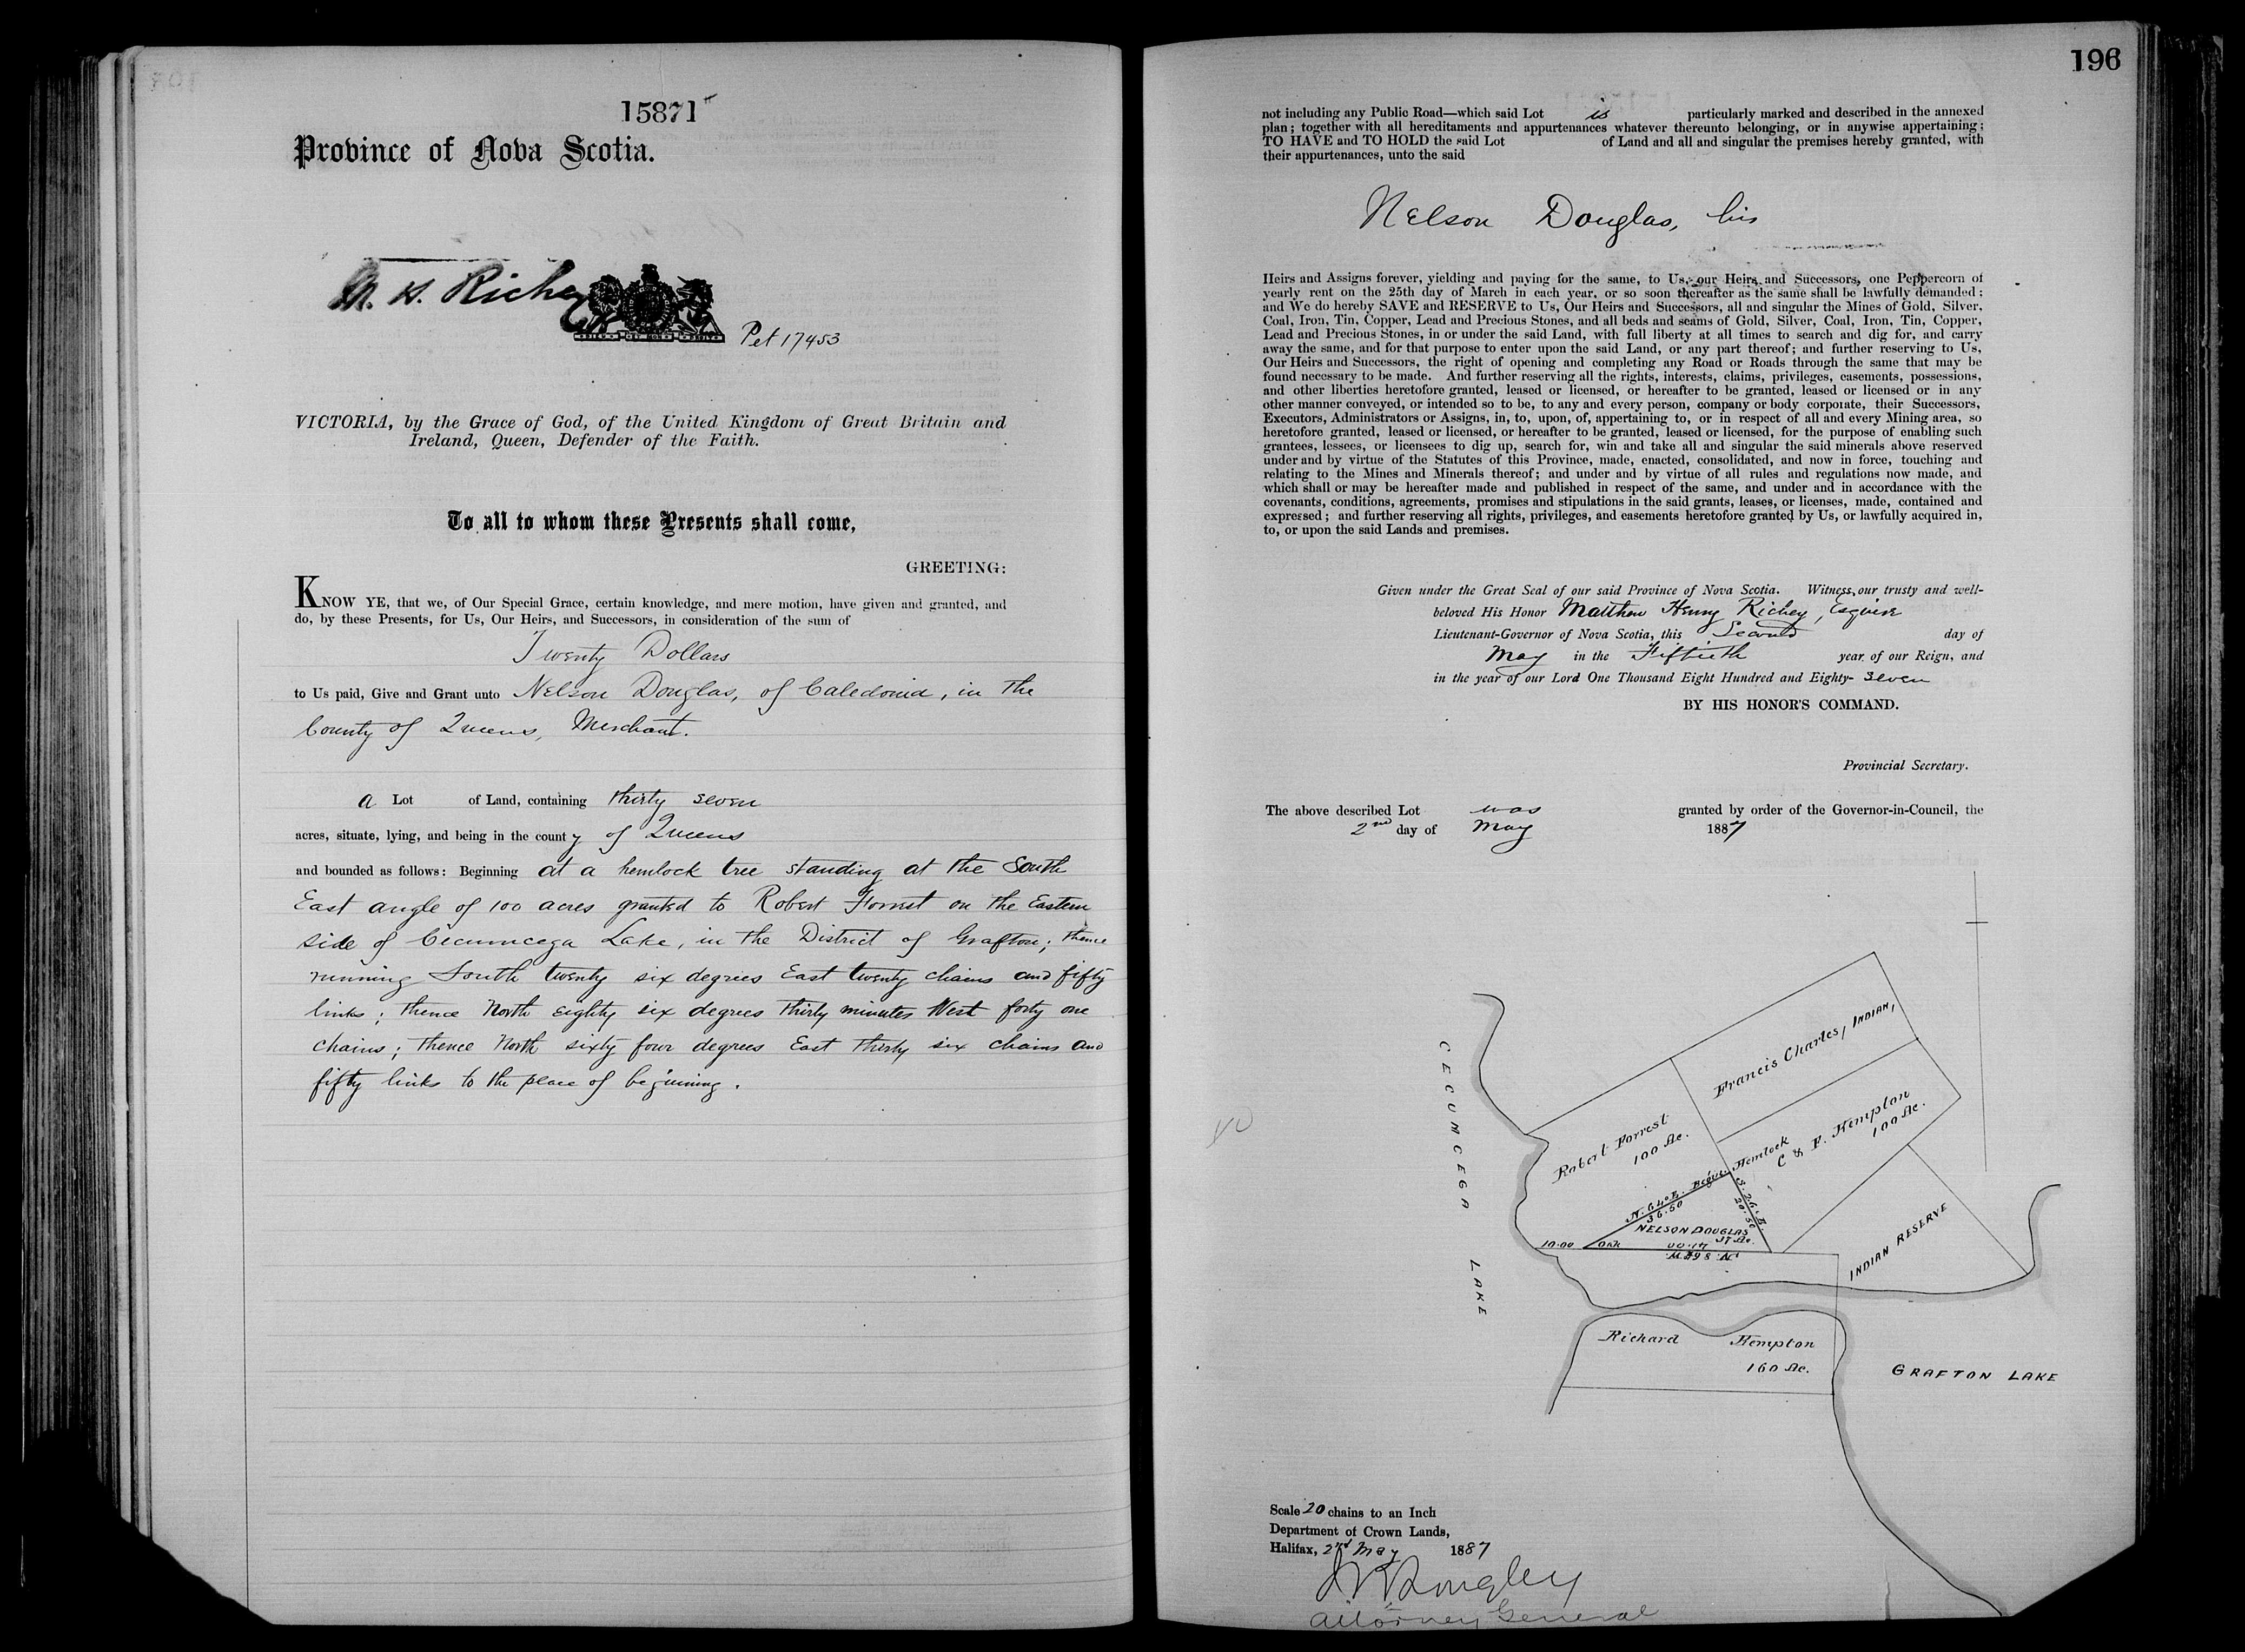 15871
Province of Nova Scotia.
M. H. Richey
Pet 17453
VICTORIA, by the Grace of God, of the United Kingdom of Great Britain and
Ireland, Queen, Defender of the Faith.
To all to whom these Presents shall come,
GREETING:
KNOW YE, that we, of Our Special Grace, certain knowledge, and mere motion, have given and granted, and
do, by these Presents, for Us, Our Heirs, and Successors, in consideration of the sum of
Twenty Dollars
to Us paid, Give and Grant unto Nelson Douglas, of Caledonia, in the
County of Queens, Merchant.
a Lot of Land, containing thirty seven
acres, situate, lying, and being in the county of Queens
and bounded as follows: Beginning at a hemlock tree standing at the South
East angle of 100 acres granted to Robert Forrest on the Eastern
side of Cecumcega Lake, in the District of Grafton; thence
running South twenty six degrees East twenty chains and fifty
links; thence North eighty six degrees thirty minutes West forty one
chains; thence North sixty four degrees East thirty six chains and
fifty links to the place of beginning.
196
not including any Public Road—which said Lot is particularly marked and described in the annexed
plan; together with all hereditaments and appurtenances whatever thereunto belonging, or in anywise appertaining;
TO HAVE and TO HOLD the said Lot of Land and all and singular the premises hereby granted, with
their appurtenances, unto the said
Nelson Douglas, his
Heirs and Assigns forever, yielding and paying for the same, to Us, our Heirs and Successors, one Peppercorn of
yearly rent on the 25th day of March in each year, or so soon thereafter as the same shall be lawfully demanded;
and We do hereby SAVE and RESERVE to Us, Our Heirs and Successors, all and singular the Mines of Gold, Silver,
Coal, Iron, Tin, Copper, Lead and Precious Stones, and all beds and seams of Gold, Silver, Coal, Iron, Tin, Copper,
Lead and Precious Stones, in or under the said Land, with full liberty at all times to search and dig for, and carry
away the same, and for that purpose to enter upon the said Land, or any part thereof; and further reserving to Us,
Our Heirs and Successors, the right of opening and completing any Road or Roads through the same that may be
found necessary to be made. And further reserving all the rights, interests, claims, privileges, easements, possessions,
and other liberties heretofore granted, leased or licensed, or hereafter to be granted, leased or licensed or in any
other manner conveyed, or intended so to be, to any and every person, company or body corporate, their Successors,
Executors, Administrators or Assigns, in, to, upon, of, appertaining to, or in respect of all and every Mining area, so
heretofore granted, leased or licensed, or hereafter to be granted, leased or licensed, for the purpose of enabling such
grantees, lessees, or licensees to dig up, search for, win and take all and singular the said minerals above reserved
under and by virtue of the Statutes of this Province, made, enacted, consolidated, and now in force, touching and
relating to the Mines and Minerals thereof; and under and by virtue of all rules and regulations now made, and
which shall or may be hereafter made and published in respect of the same, and under and in accordance with the
covenants, conditions, agreements, promises and stipulations in the said grants, leases, or licenses, made, contained and
expressed; and further reserving all rights, privileges, and easements heretofore granted by Us, or lawfully acquired in,
to, or upon the said Lands and premises.
Given under the Great Seal of our said Province of Nova Scotia. Witness, our trusty and well-
beloved His Honor Matthew Henry Richey, Esquire
Lieutenant-Governor of Nova Scotia, this Second day of
May in the Fiftieth year of our Reign, and
in the year of our Lord One Thousand Eight Hundred and Eighty-seven
BY HIS HONOR'S COMMAND.
Provincial Secretary.
The above described Lot was granted by order of the Governor-in-Council, the
2nd day of May 1887
Francis Charles, INDIAN,
CECUMCEGA LAKE
Robert Forrest
100 Ac.
C & F. Kempton
100 Ac.
Hemlock
N. 64° E.
36.50
S. 26° E.
20.50
NELSON DOUGLAS
37 Ac.
10.00
Oak
INDIAN RESERVE
Richard Kempton
160 Ac.
GRAFTON LAKE
Scale 20 chains to an Inch
Department of Crown Lands,
Halifax, 2nd May 1887
Attorney General